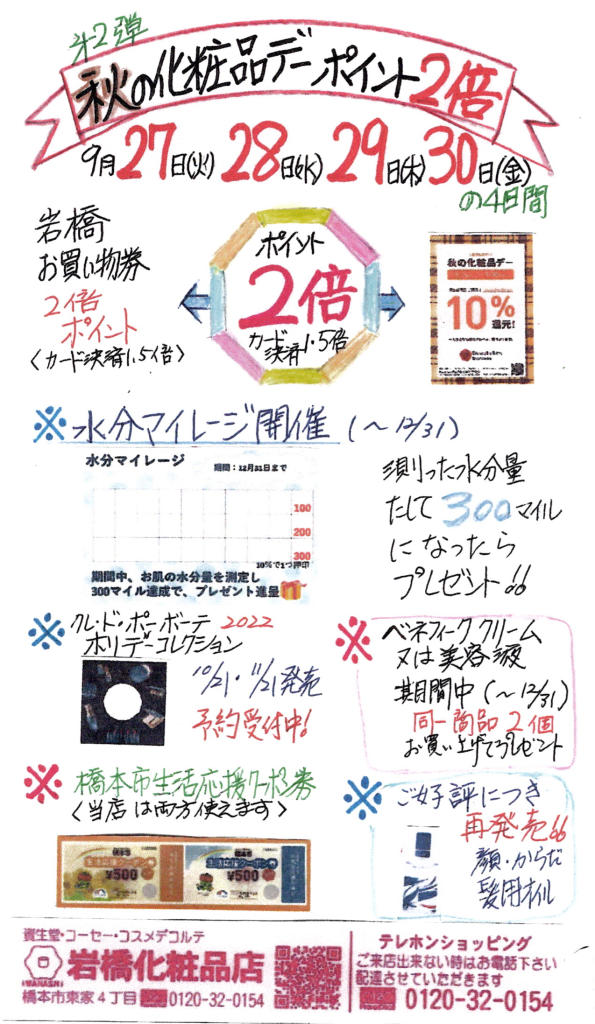 第2弾
秋の化粧品デー ポイント2倍
9月27日(火) 28日(水) 29日(木) 30日(金)
の4日間
岩橋
お買い物券
2倍
ポイント
〈カード決済1.5倍〉
ポイント
2倍
カード
決済1.5倍
秋の化粧品デー
10%
還元!
※水分マイレージ開催(〜12/31)
水分マイレージ
期間:12月31日まで
100
200
300
10%で1つ押印
期間中、お肌の水分量を測定し
300マイル達成で、プレゼント進呈
測った水分量
たして300マイル
になったら
プレゼント!!
※クレ・ド・ポーボーテ 2022
ホリデーコレクション
10/21・11/21発売
予約受付中!
※ベネフィーク クリーム
又は美容液
期間中(〜12/31)
同一商品2個
お買い上げでプレゼント
※橋本市生活応援クーポン券
〈当店は両方使えます〉
生活応援クーポン
¥500
生活応援クーポン
¥500
※ご好評につき
再発売!!
顔・からだ
髪用オイル
資生堂・コーセー・コスメデコルテ
IWAHASHI
岩橋化粧品店
橋本市東家4丁目 0120-32-0154
テレホンショッピング
ご来店出来ない時はお電話下さい
配達させていただきます
0120-32-0154